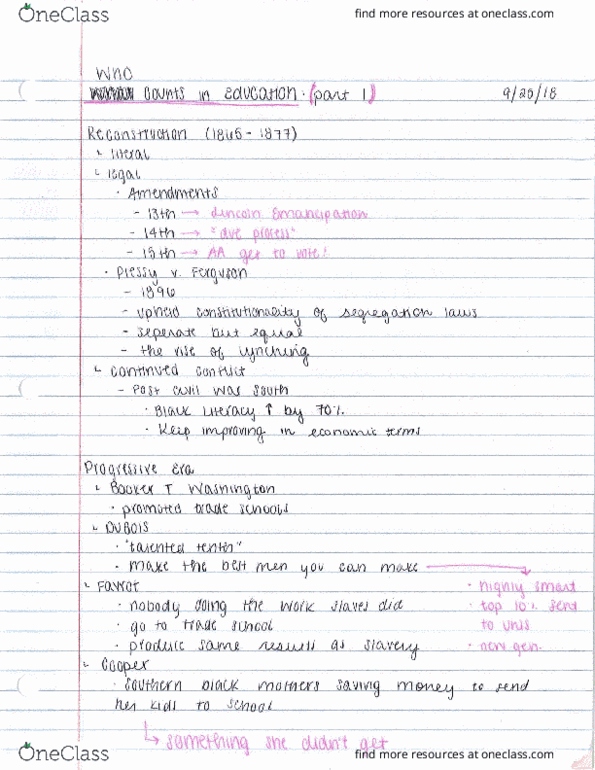 OneClass
find more resources at oneclass.com
Who
Counts in Education (part 1)
9/20/18
Reconstruction (1865-1877)
literal
legal
· Amendments
- 13th → Lincoln Emancipation
- 14th → "due process"
- 15th → AA get to vote!
· Plessy v. Ferguson
- 1896
- upheld constitutionality of segregation laws
- seperate but equal
- the rise of lynching
continued conflict
- Post civil was south
· Black Literacy ↑ by 70%
· Keep improving in economic terms
Progressive Era
Booker T Washington
· promoted trade schools
DuBois
· "talented tenth"
· make the best men you can make →
· highly smart
· top 10% send
to unis
· new gen.
· nobody doing the work slaves did
· go to trade school
· produce same results as slavery
Cooper
· Southern black mothers saving money to send
her kids to school
↳ something she didn't get
OneClass
find more resources at oneclass.com